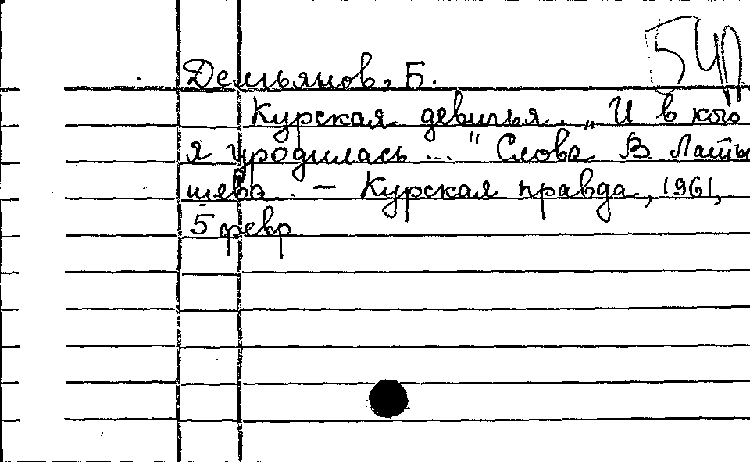 54п
Демьянов, Б.
Курская девичья. „И в кого
я уродилась..." Слова В. Латы
шева. - Курская правда, 1961,
5 февр